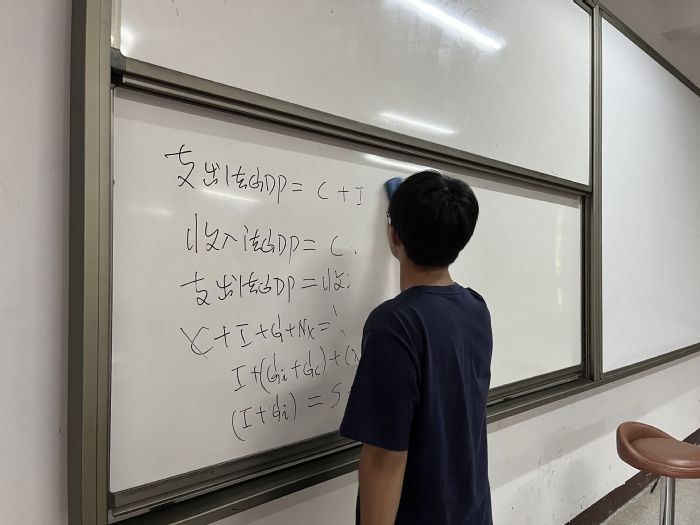 支出法GDP = C + I
收入法GDP = C
支出法GDP = 收
C + I + G + NX =
I + (Gi + Gc) + (X
(I + Gi) = S